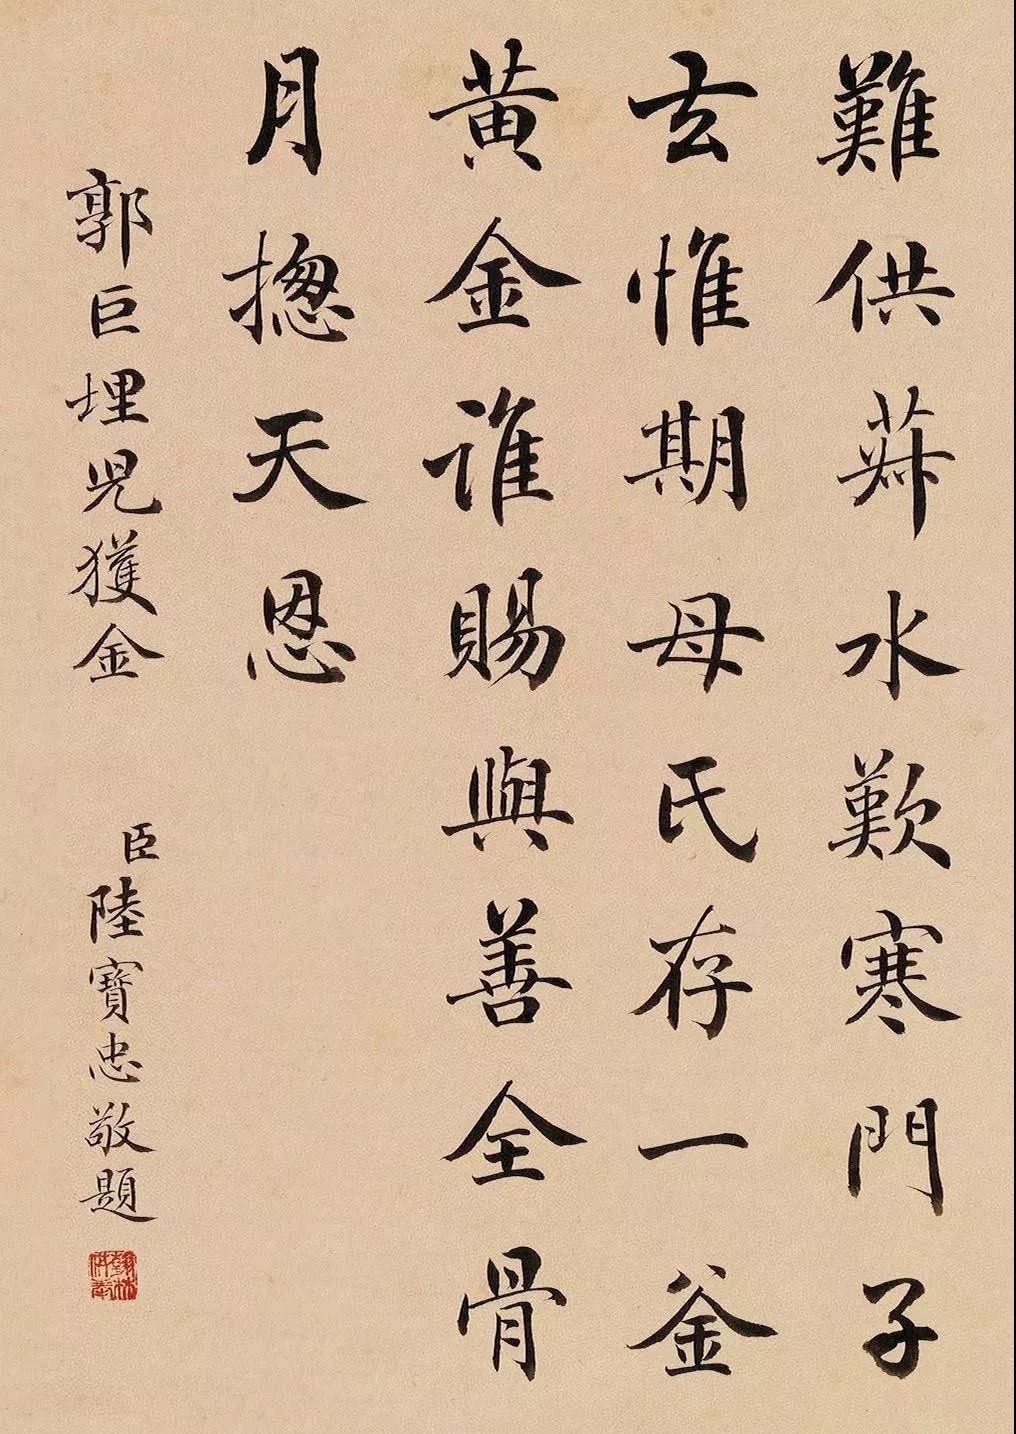 難供菽水歎寒門子
去惟期母氏存一釜
黄金誰賜與善全骨
月揔天恩
郭巨埋児獲金
臣陸寶忠敬題
翰林供奉